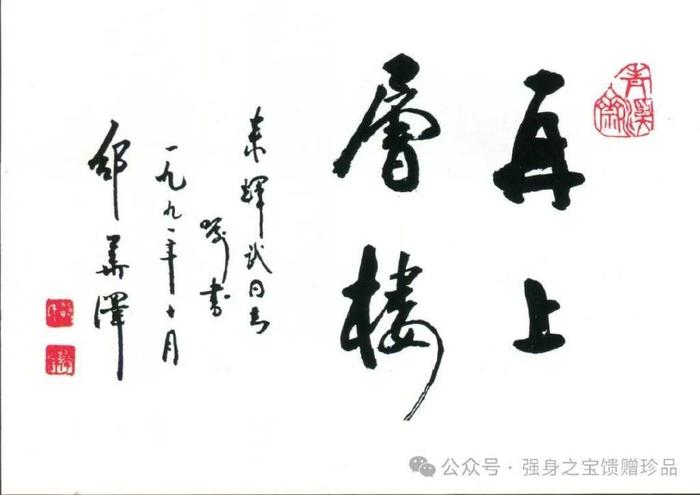 再上
層樓
来輝武同志
嘱書
一九九一年十月
邵華澤
公众号 · 强身之宝馈赠珍品